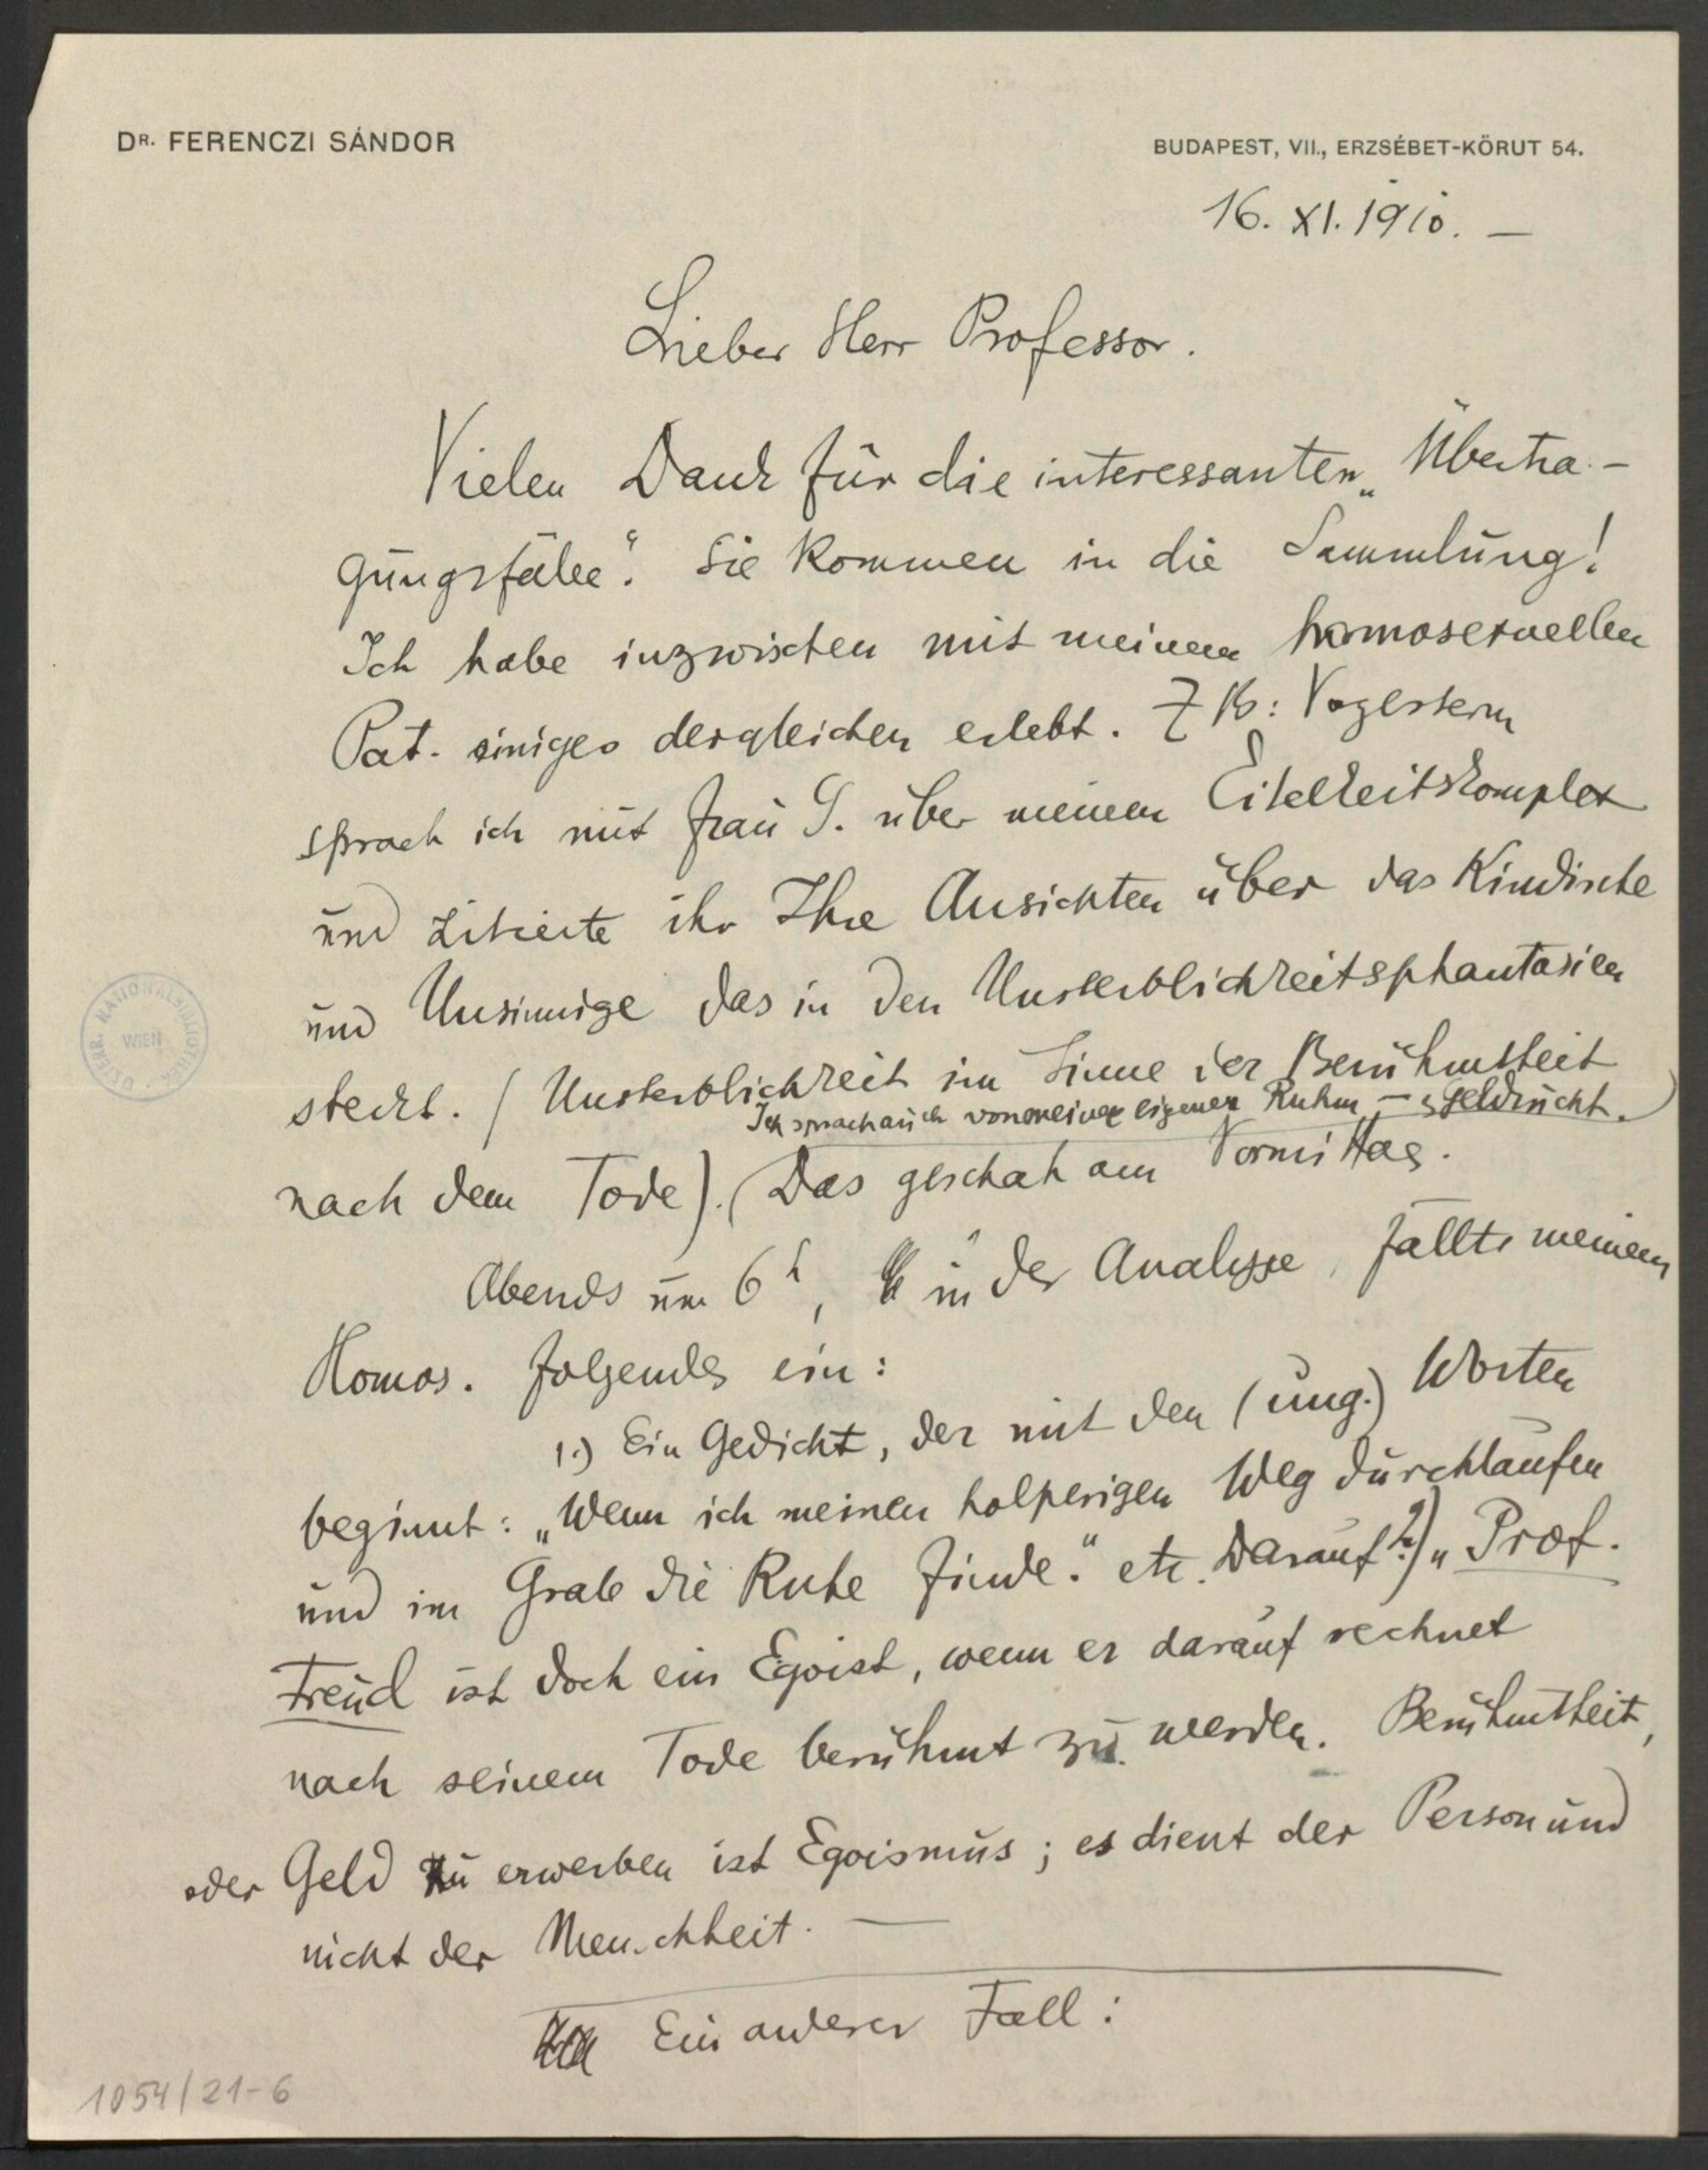 DR. FERENCZI SÁNDOR
BUDAPEST, VII., ERZSÉBET-KÖRUT 54.
16. XI. 1910. —
Lieber Herr Professor.
Vielen Dank für die interessanten „Übertra-
gungsfälle“. Sie kommen in die Sammlung!
Ich habe inzwischen mit meinem homosexuellen
Pat. einiges dergleichen erlebt. Z B: Vorgestern
sprach ich mit Frau G. über meinen Eitelkeitskomplex
und zitierte ihr Ihre Ansichten über das Kindische
und Unsinnige das in den Unsterblichkeitsphantasien
steckt. (Unsterblichkeit im Sinne der Berühmtheit
Ich sprach auch von meiner eigenen Ruhm- Geldsucht.)
nach dem Tode). (Das geschah am Vormittag.
Abends um 6h, in der Analyse, fällt meinem
Homos. folgendes ein:
1.) Ein Gedicht, der mit den (ung.) Worten
beginnt: „Wenn ich meinen holperigen Weg durchlaufen
und im Grabe die Ruhe finde.“ etc. Darauf 2.) „Prof.
Freud ist doch ein Egoist, wenn er darauf rechnet
nach seinem Tode berühmt zu werden. Berühmtheit,
oder Geld zu erwerben ist Egoismus; es dient der Person und
nicht der Menschheit. —
Ein anderer Fall:
ÖSTERR. NATIONALBIBLIOTHEK · WIEN
1054/21-6